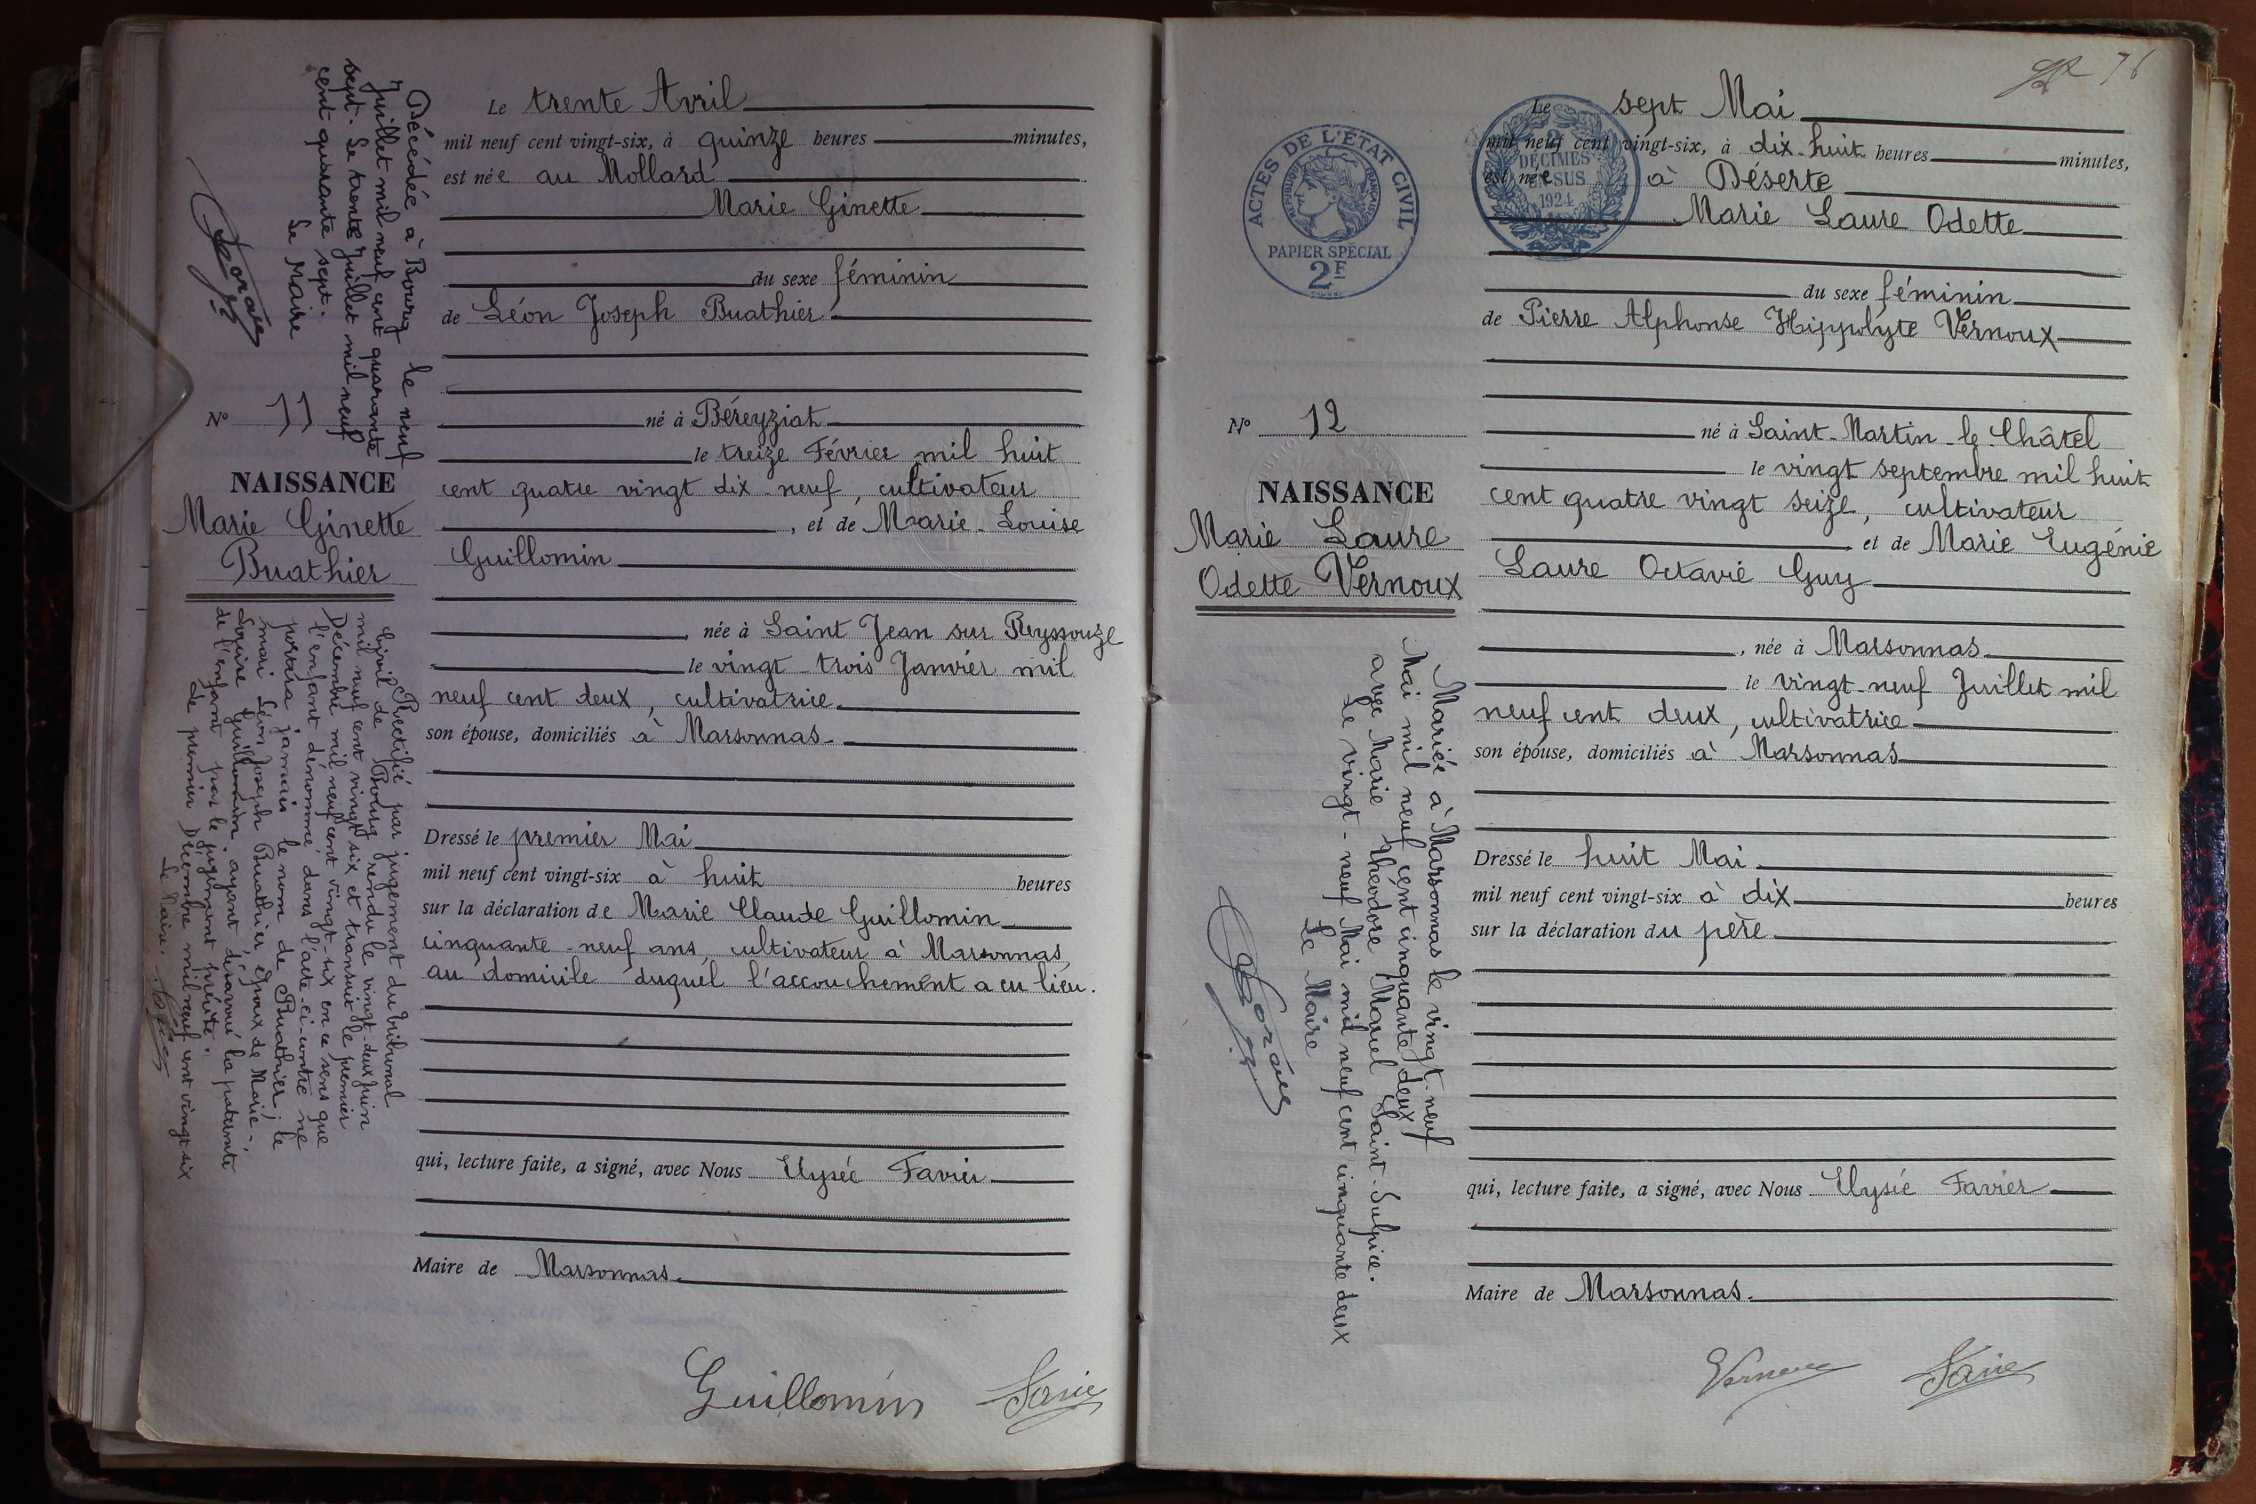 Le trente Avril
mil neuf cent vingt-six, à quinze heures minutes,
est née au Mollard
Marie Ginette
du sexe féminin
de Léon Joseph Buathier
né à Béreyziat
le treize Février mil huit
cent quatre vingt dix-neuf, cultivateur
, et de Marie-Louise
Guillomin
, née à Saint Jean sur Reyssouze
le vingt-trois Janvier mil
neuf cent deux, cultivatrice
son épouse, domiciliés à Marsonnas
Dressé le premier Mai
mil neuf cent vingt-six à huit heures
sur la déclaration de Marie Claude Guillomin
cinquante-neuf ans, cultivateur à Marsonnas,
au domicile duquel l'accouchement a eu lieu.
qui, lecture faite, a signé, avec Nous Ulysée Favier
Maire de Marsonnas.
Guillomin
Décédée à Bourg le neuf
Juillet mil neuf cent quarante
sept. Le trente Juillet mil neuf
cent quarante sept.
Le Maire
N° 11
NAISSANCE
Marie Ginette
Buathier
Rectifié par jugement du tribunal
Civil de Bourg rendu le vingt-deux Juin
mil neuf cent vingt six et transcrit le premier
Décembre mil neuf cent vingt-six en ce sens que
l'enfant dénommé dans l'acte ci-contre ne
portera jamais le nom de Buathier; le
mari Léon Joseph Buathier époux de Marie-
Louise Guillomin ayant désavoué la paternité
de l'enfant par le jugement précité.
Le premier Décembre mil neuf cent vingt-six
Le Maire.
76
ACTES DE L'ÉTAT CIVIL
RÉPUBLIQUE FRANÇAISE
PAPIER SPÉCIAL
2F
2
DÉCIMES
EN SUS
1924
Le sept Mai
mil neuf cent vingt-six, à dix-huit heures minutes,
est née à Déserte
Marie Laure Odette
du sexe féminin
de Pierre Alphonse Hippolyte Vernoux
né à Saint-Martin-le-Châtel
le vingt septembre mil huit
cent quatre vingt seize, cultivateur
et de Marie Eugénie
Laure Octavie Guy
, née à Marsonnas
le vingt-neuf Juillet mil
neuf cent deux, cultivatrice
son épouse, domiciliés à Marsonnas
Dressé le huit Mai
mil neuf cent vingt-six à dix heures
sur la déclaration du père
qui, lecture faite, a signé, avec Nous Ulysée Favier
Maire de Marsonnas.
N° 12
NAISSANCE
Marie Laure
Odette Vernoux
Mariée à Marsonnas le vingt-neuf
Mai mil neuf cent cinquante deux
avec Marie Théodore Marcel Saint-Sulpice.
Le vingt-neuf Mai mil neuf cent cinquante deux
Le Maire